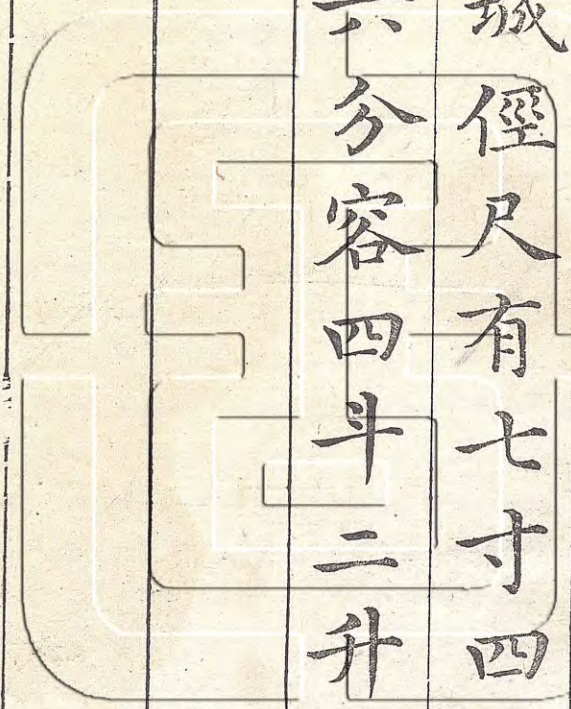 珹俓尺有七寸四
六分容四斗二升